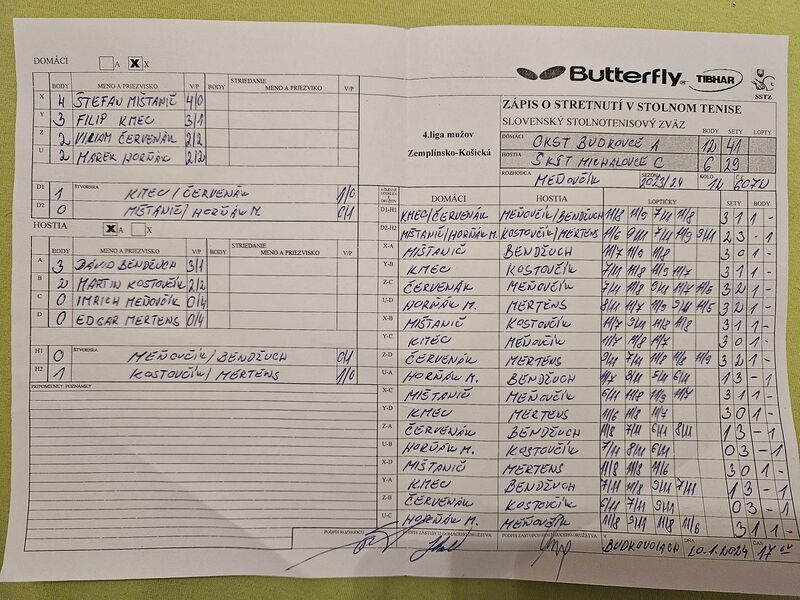 DOMÁCI A X X
BODY MENO A PRIEZVISKO V/P BODY STRIEDANIE MENO A PRIEZVISKO V/P
X 4 ŠTEFAN MIŠTANIČ 4/0
Y 3 FILIP KMEC 3/1
Z 2 VIRIAM ČERVENÁK 2/2
U 2 MAREK HORŇÁK 2/2
D1 1 ŠTVORHRA KMEC/ČERVENÁK 1/0
D2 0 MIŠTANIČ/HORŇÁK M. 0/1
HOSTIA X A X
BODY MENO A PRIEZVISKO V/P BODY STRIEDANIE MENO A PRIEZVISKO V/P
A 3 DÁVID BENDŽUCH 3/1
B 2 MARTIN KOSTOVČÍK 2/2
C 0 IMRICH MEŇOVČÍK 0/4
D 0 EDGAR MERTENS 0/4
H1 0 ŠTVORHRA MEŇOVČÍK/BENDŽUCH 0/1
H2 1 KOSTOVČÍK/MERTENS 1/0
PRIPOMIENKY, POZNÁMKY
PODPIS ROZHODCU
Butterfly TIBHAR SSTZ
ZÁPIS O STRETNUTÍ V STOLNOM TENISE
SLOVENSKÝ STOLNOTENISOVÝ ZVÄZ
4.liga mužov
Zemplínsko-Košická
DOMÁCI OKST BUDKOVCE A BODY 12 SETY 41 LOPTY
HOSTIA ŠKST MICHALOVCE C 6 29
ROZHODCA MEŇOVČÍK SEZÓNA 2023/24 KOLO
DOMÁCI HOSTIA LOPTIČKY SETY BODY
D1-H1 KMEC/ČERVENÁK MEŇOVČÍK/BENDŽUCH 11/8 11/9 7/11 11/8 3 1 1 -
D2-H2 MIŠTANIČ/HORŇÁK M. KOSTOVČÍK/MERTENS 11/6 9/11 7/11 11/9 9/11 2 3 - 1
X-A MIŠTANIČ BENDŽUCH 11/7 11/9 11/8 3 0 1 -
Y-B KMEC KOSTOVČÍK 7/11 11/8 11/9 11/7 3 1 1 -
Z-C ČERVENÁK MEŇOVČÍK 7/11 11/8 9/11 11/8 11/5 3 2 1 -
U-D HORŇÁK M. MERTENS 8/11 11/7 11/9 9/11 11/5 3 2 1 -
X-B MIŠTANIČ KOSTOVČÍK 11/7 9/11 11/8 11/8 3 1 1 -
Y-C KMEC MEŇOVČÍK 11/7 11/8 11/7 3 0 1 -
Z-D ČERVENÁK MERTENS 9/11 7/11 11/8 11/8 11/9 3 2 1 -
U-A HORŇÁK M. BENDŽUCH 11/7 9/11 5/11 6/11 1 3 - 1
X-C MIŠTANIČ MEŇOVČÍK 6/11 11/8 11/9 11/7 3 1 1 -
Y-D KMEC MERTENS 11/6 11/8 11/7 3 0 1 -
Z-A ČERVENÁK BENDŽUCH 11/8 7/11 6/11 8/11 1 3 - 1
U-B HORŇÁK M. KOSTOVČÍK 7/11 8/11 6/11 0 3 - 1
X-D MIŠTANIČ MERTENS 11/8 11/8 11/6 3 0 1 -
Y-A KMEC BENDŽUCH 7/11 11/8 9/11 7/11 1 3 - 1
Z-B ČERVENÁK KOSTOVČÍK 6/11 7/11 9/11 0 3 - 1
U-C HORŇÁK M. MEŇOVČÍK 11/8 9/11 11/8 11/6 3 1 1 -
PODPIS ZÁSTUPCU DOMÁCEHO DRUŽSTVA PODPIS ZÁSTUPCU HOSŤUJÚCEHO DRUŽSTVA V BUDKOVCIACH DŇA 20.1.2024 ČAS 17